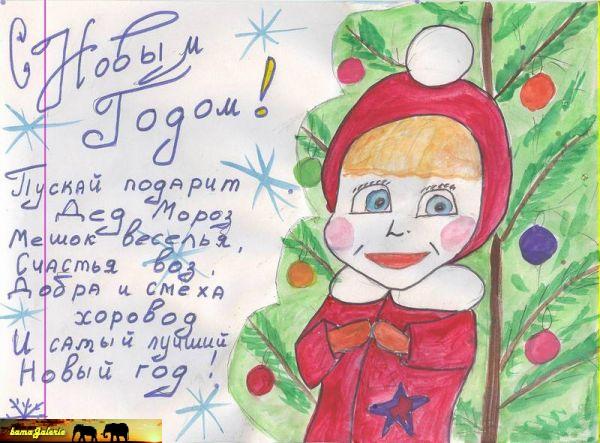 С Новым
Годом!
Пускай подарит
Дед Мороз
Мешок веселья,
Счастья воз,
Добра и смеха
хоровод
И самый лучший
Новый год!
bamaGalerie